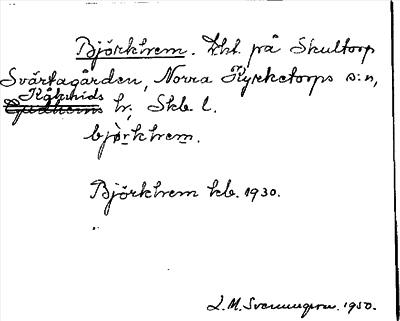 Björkhem. Lht. på Skultorp
Svärtagården, Norra Kyrketorps s:n,
Kåkinds
Gudhems hr, Skb. l.
bjò̤rkhem.
Björkhem kb. 1930.
L.M. Svenungson. 1950.